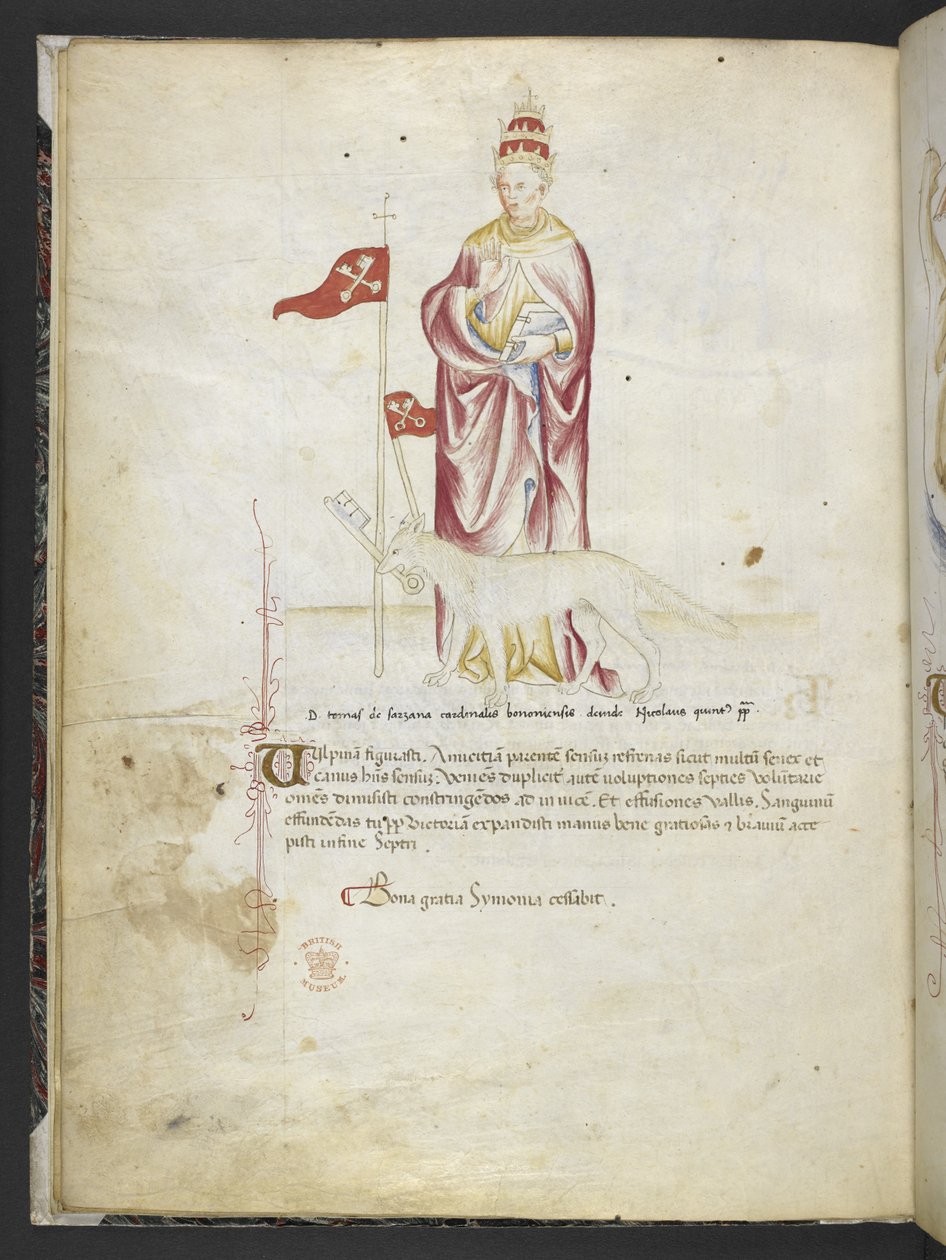 D. tomas de sarzana cardinalis bononiensis . deinde Nicolaus quintꝰ pp̄ .
Vulpinā figurasti . Amicitiā parentē sensuz refrenas sicut multū senex et
canus huiꝰ sensuz . Venies duplicit̄ autē uoluptiones septies voluntarie
omēs dimisisti constringēdos ad inuicē . Et effusiones vallis . Sanguinū
effundēdas tu pp̄ Victoriā expandisti manus bene gratiosas ⁊ brauiū acce
pisti in fine Septri .
Bona gratia Symonia cessabit .
BRITISH
MUSEUM